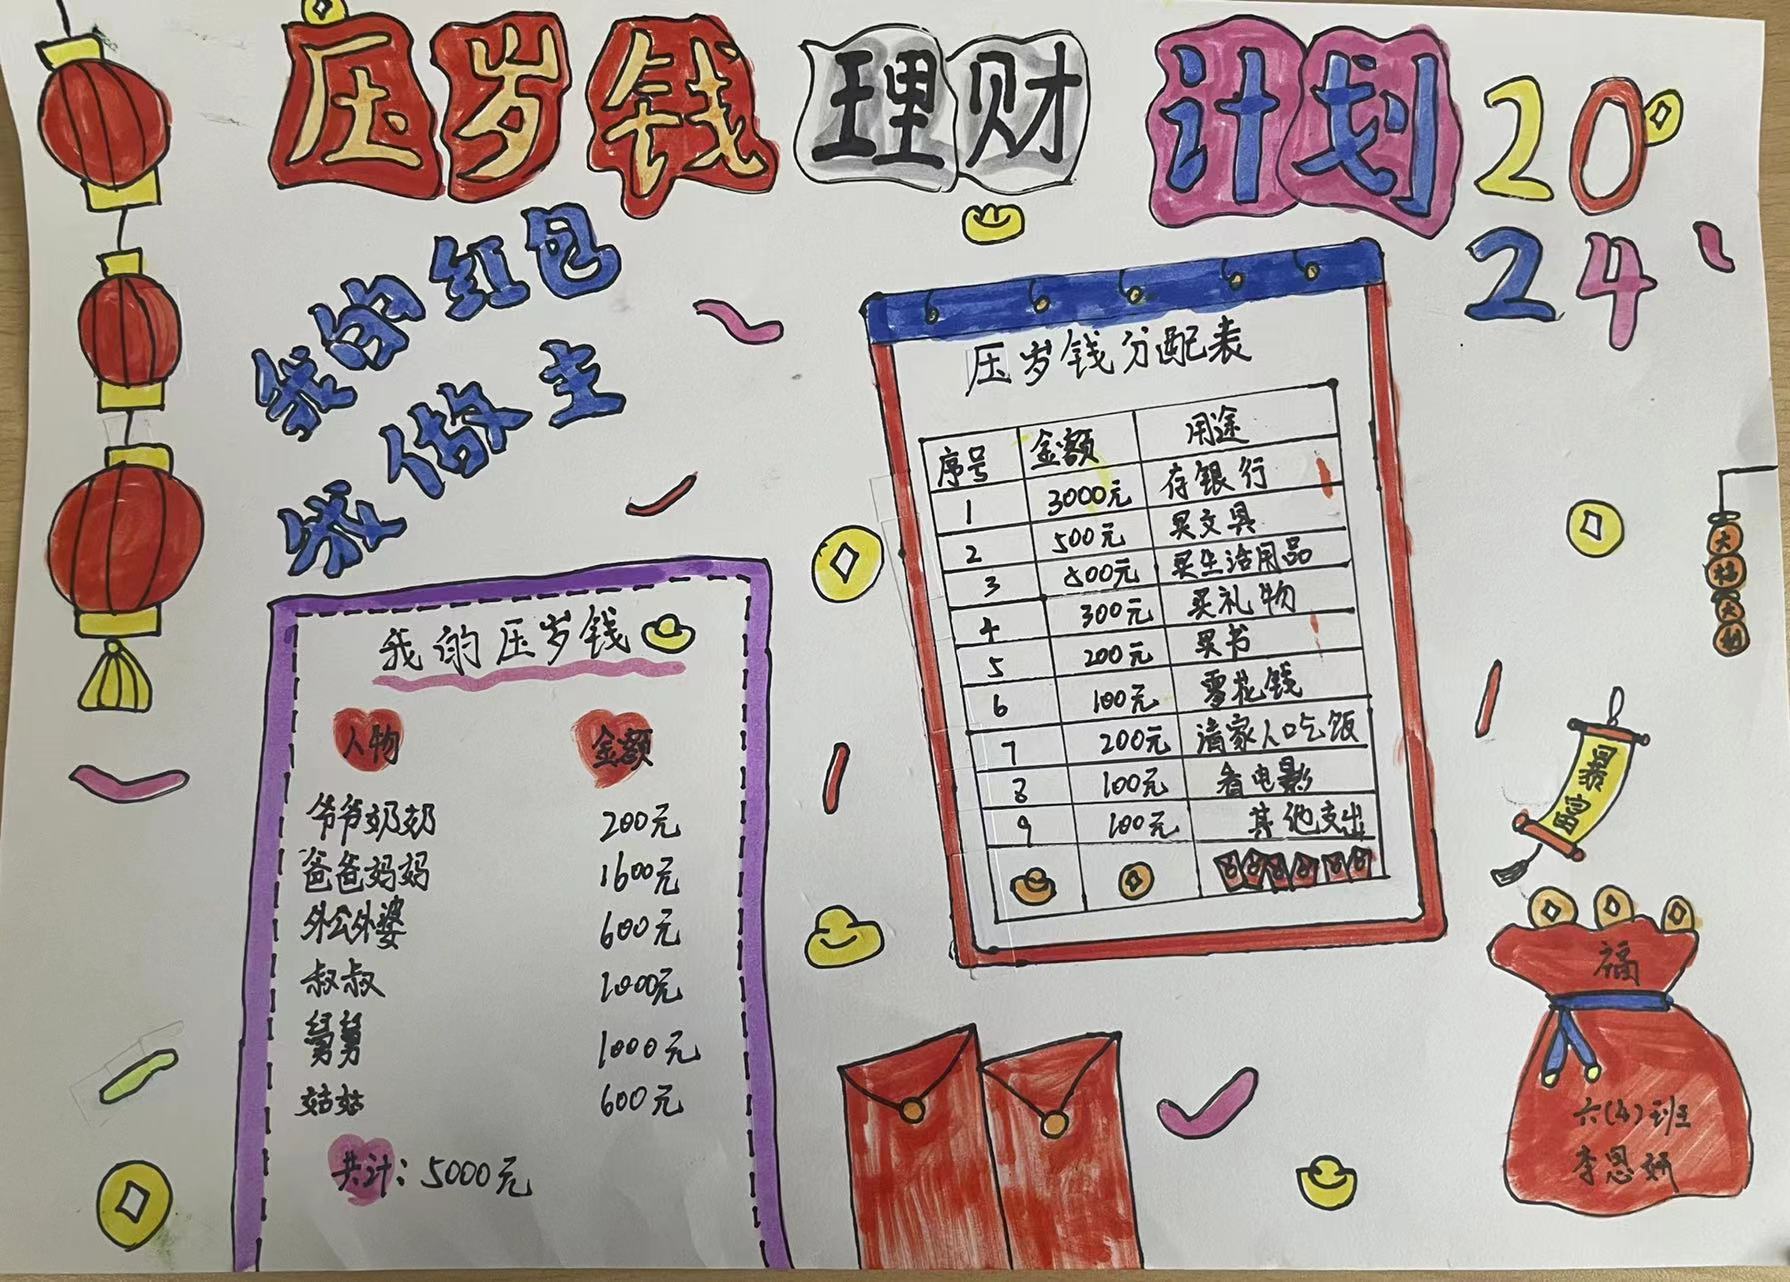 压岁钱理财计划 2024
我的红包
我做主
我的压岁钱
人物 金额
爷爷奶奶 200元
爸爸妈妈 1600元
外公外婆 600元
叔叔 1000元
舅舅 1000元
姑姑 600元
共计:5000元
压岁钱分配表
序号 金额 用途
1 3000元 存银行
2 500元 买文具
3 500元 买生活用品
4 300元 买礼物
5 200元 买书
6 100元 零花钱
7 200元 请家人吃饭
8 100元 看电影
9 100元 其他支出
大
大
暴富
福
六(4)班
李思妍